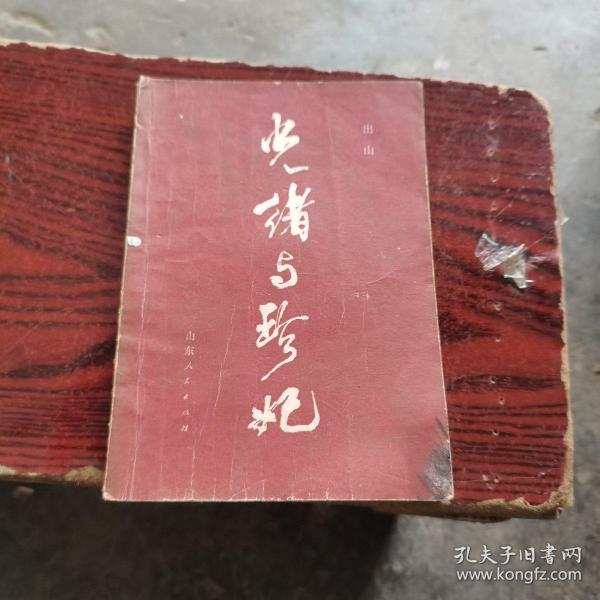 出山
光绪与珍妃
山东人民出版社
孔夫子旧书网
www.kongfz.com